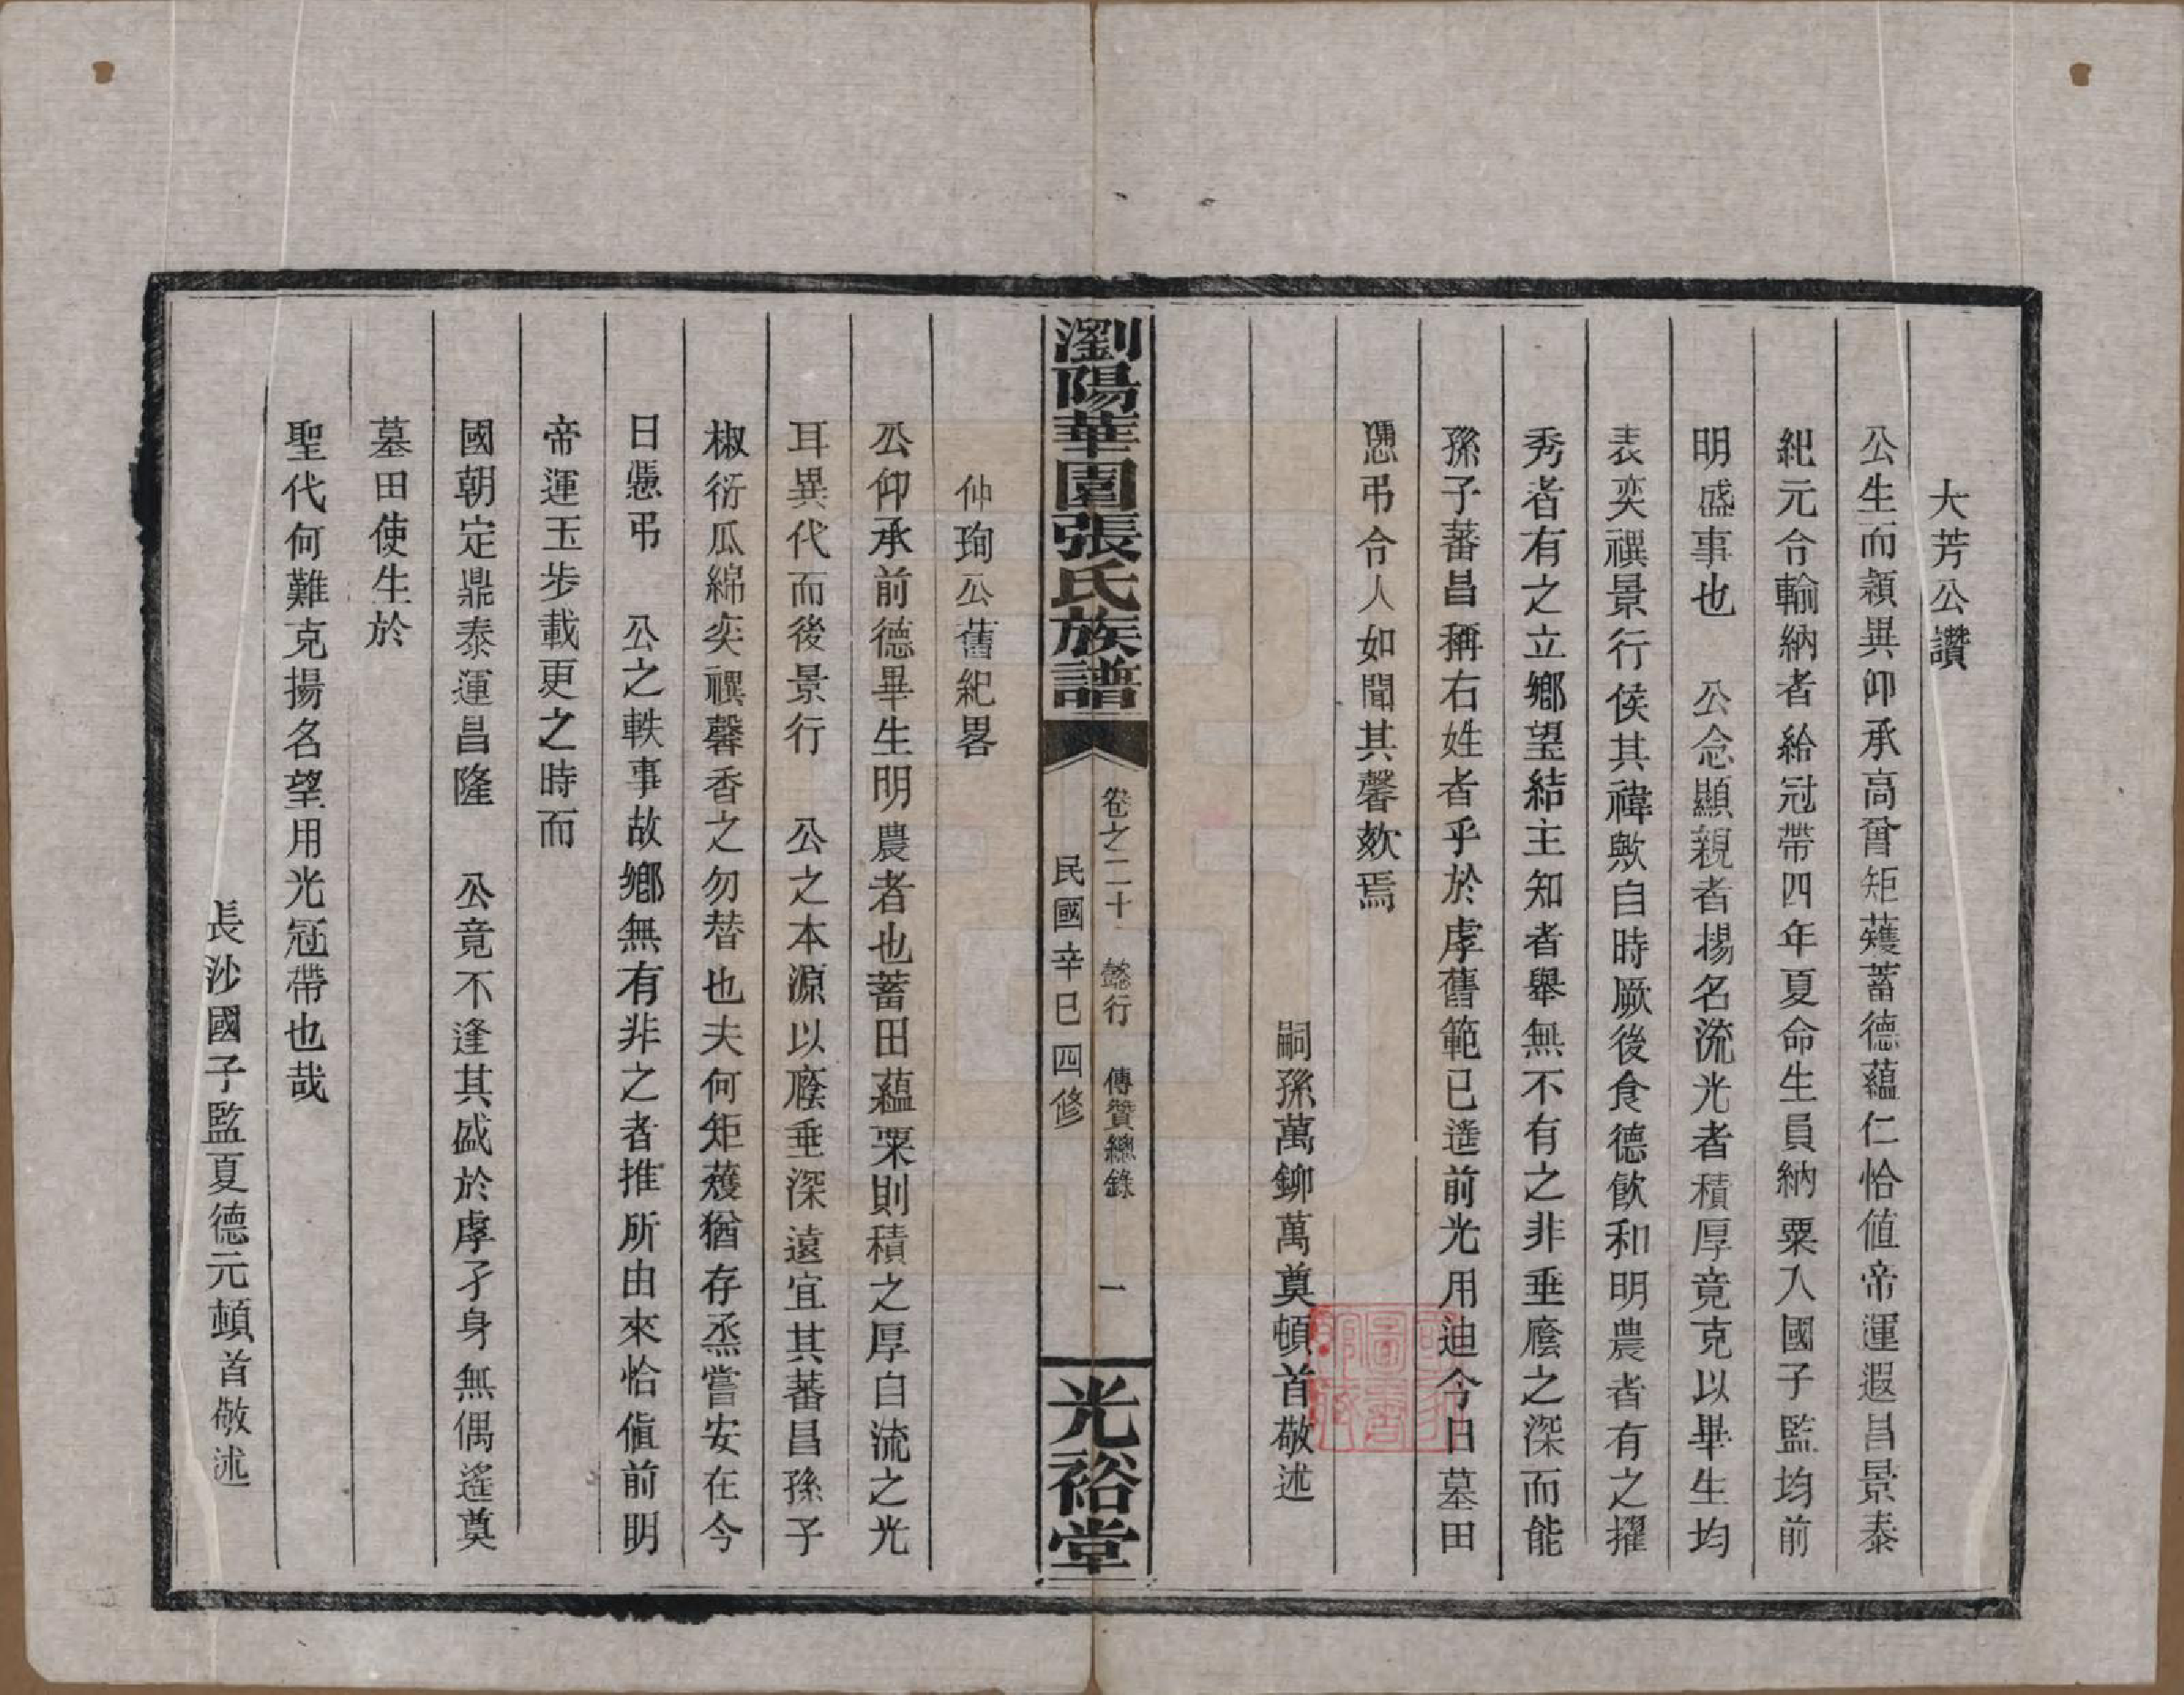 大芳公讚
公生而穎異仰承高曾矩矱蓄德蘊仁恰值帝運遐昌景泰
紀元令輸納者給冠帶四年夏命生員納粟入國子監均前
明盛事也　公念顯親者揚名流光者積厚竟克以畢生均
表奕禩景行俟其禕歟自時厥後食德飲和明農者有之擢
秀者有之立鄉望結主知者舉無不有之非垂廕之深而能
孫子蕃昌稱右姓者乎於虖舊範已遙前光用迪今日墓田
憑弔令人如聞其馨欬焉
嗣孫萬鉚萬奠頓首敬述
瀏陽華園張氏族譜
卷之二十　懿行　傳贊總錄　一
民國辛巳四修
光裕堂
仲珣公舊紀畧
公仰承前德畢生明農者也蓄田蘊粟則積之厚自流之光
耳異代而後景行　公之本源以廕垂深遠宜其蕃昌孫子
椒衍瓜綿奕禩馨香之勿替也夫何矩蒦猶存烝嘗安在今
日憑弔　公之軼事故鄉無有非之者推所由來恰值前明
帝運玉步載更之時而
國朝定鼎泰運昌隆　公竟不逢其盛於虖孑身無偶遙奠
墓田使生於
聖代何難克揚名望用光冠帶也哉
長沙國子監夏德元頓首敬述